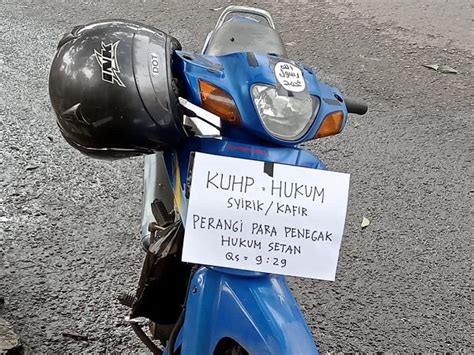 INK
DOT
الله
رسول
محمد
KUHP = HUKUM
SYIRIK / KAFIR
PERANGI PARA PENEGAK
HUKUM SETAN
QS = 9:29